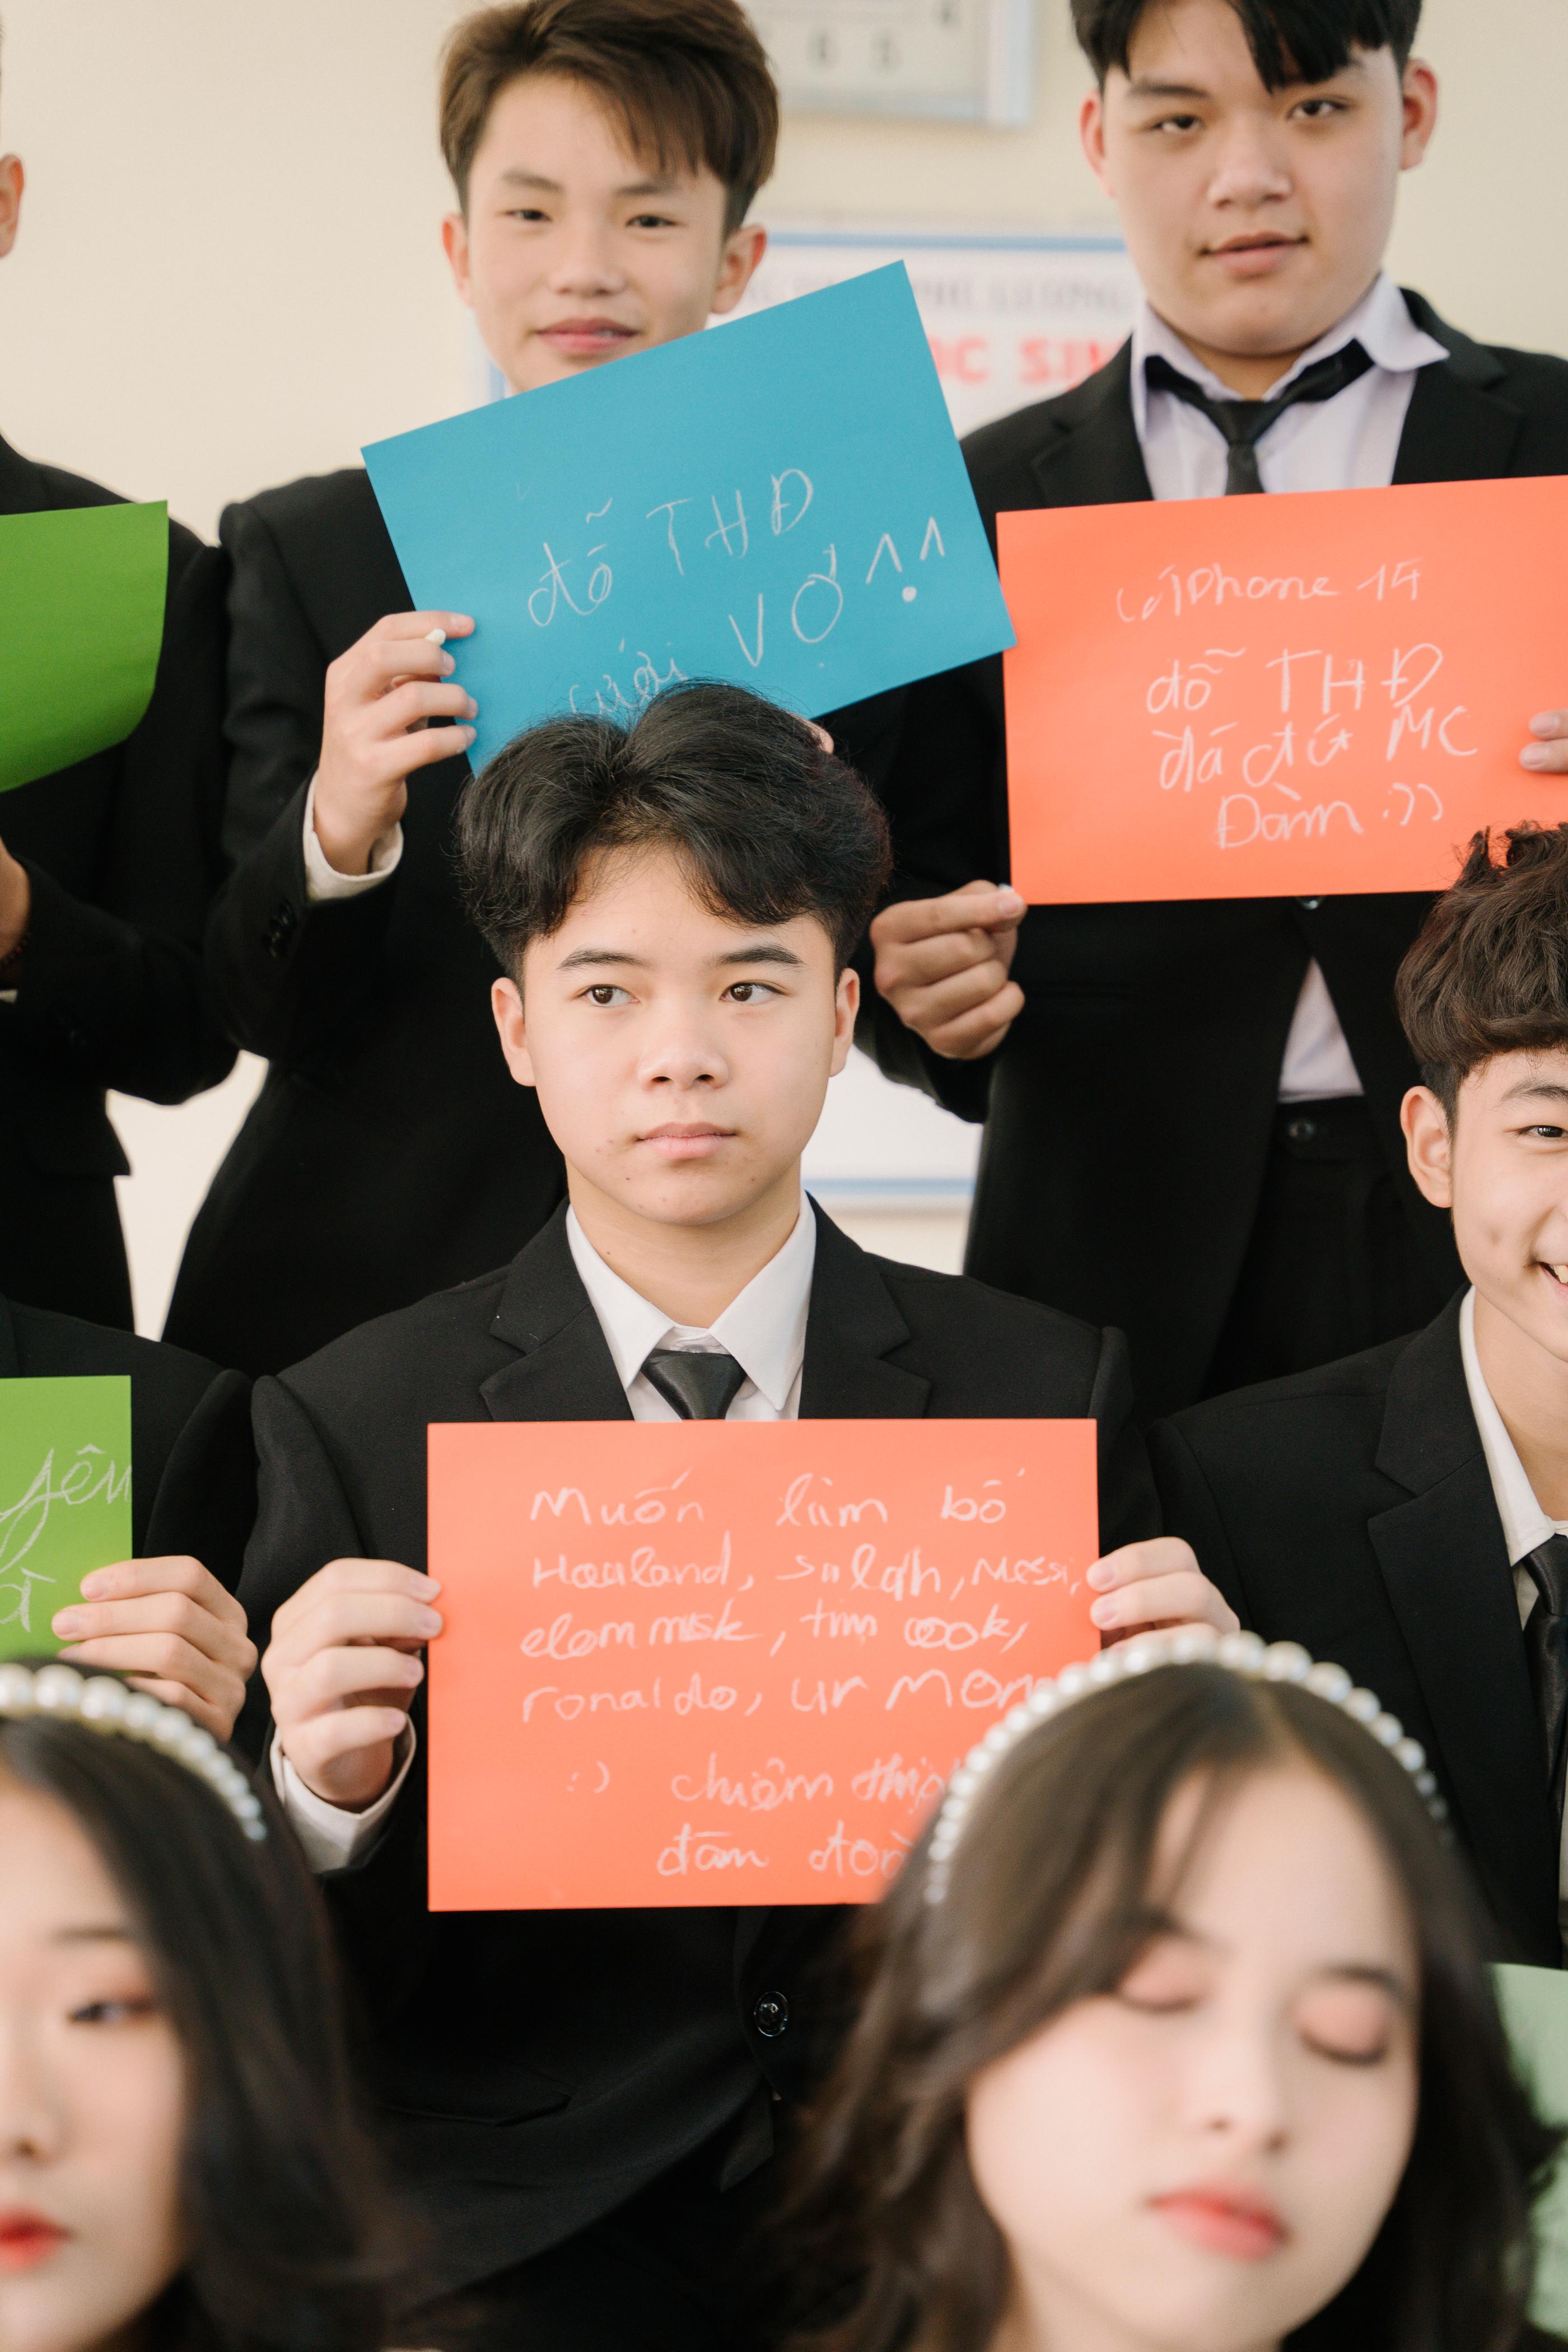 LƯƠNG
đỗ THĐ
cưới VỢ ^.^
có iPhone 14
đỗ THĐ
đá đít MC
Đàm :))
yên
Muốn làm bố
Haaland, salah, Messi,
elom musk, tim cook,
ronaldo, ur Mom
:) chiêm
đàn